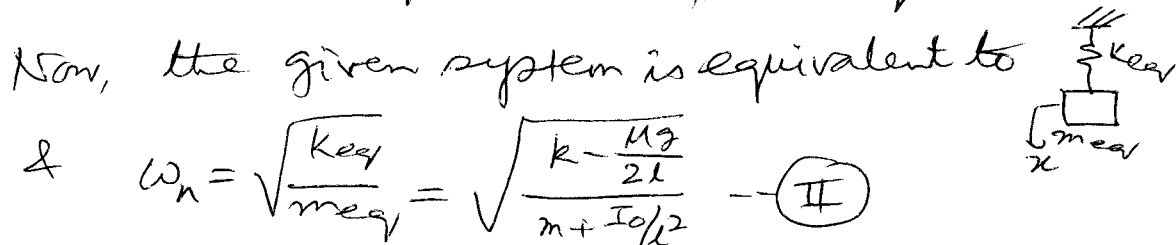 Now, the given system is equivalent to
Keq
meq
x
& ωn = √(Keq/meq) = √((k - Mg/2l)/(m + Io/l²)) -- II